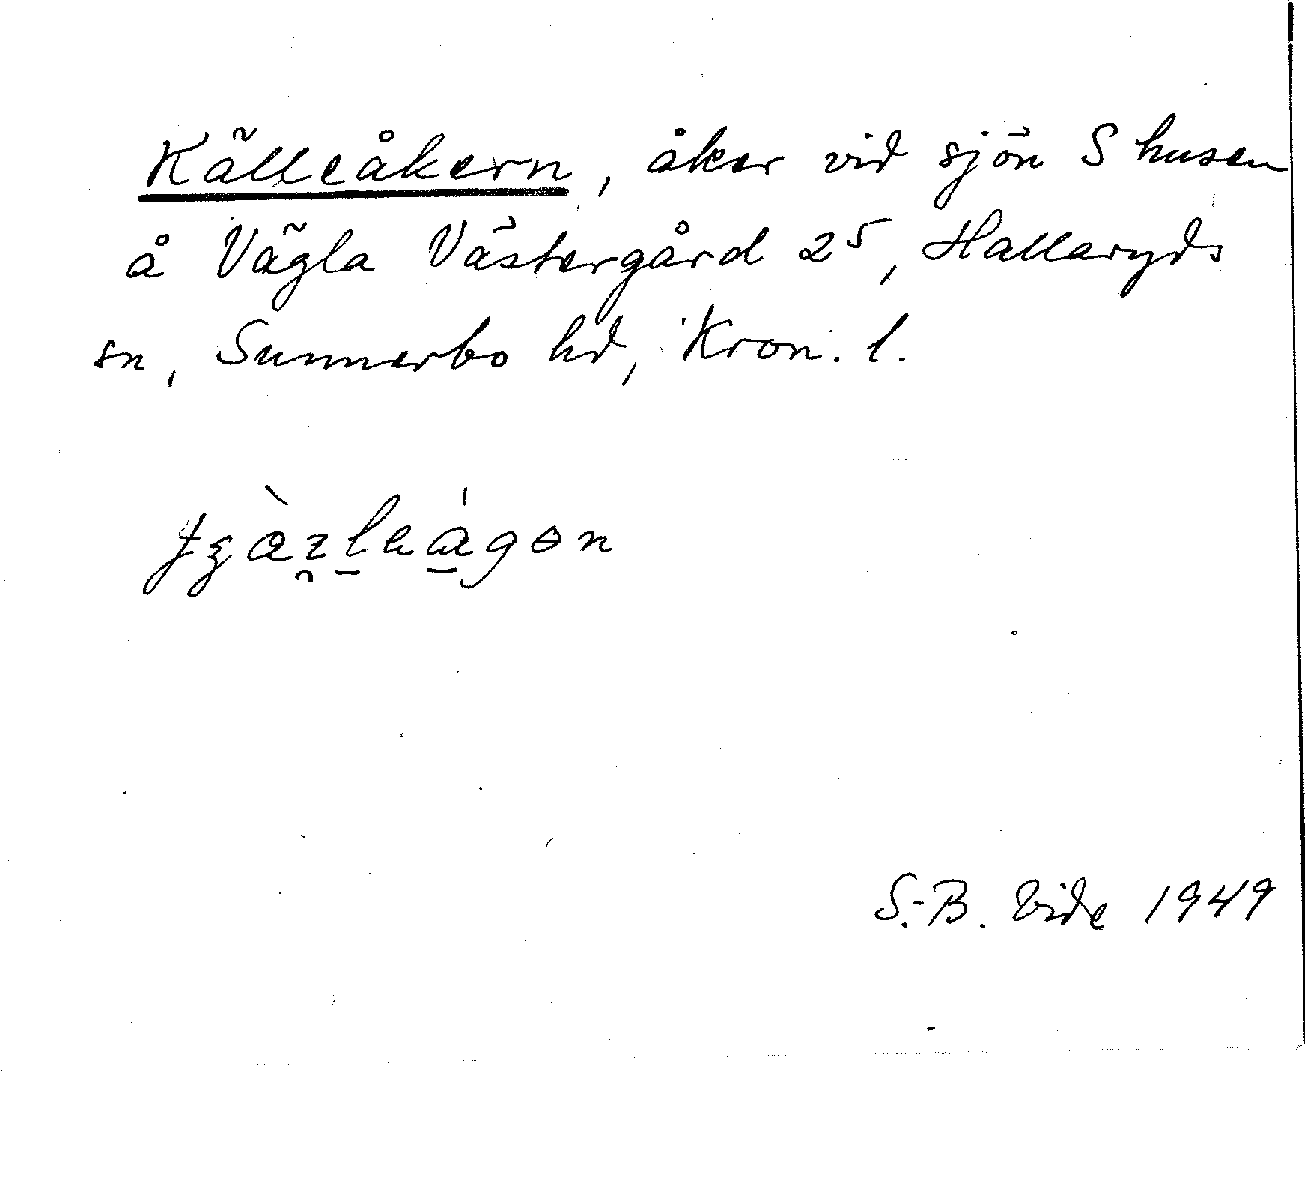 Källeåkern, åker vid sjön S husen
å Vägla Västergård 2⁵, Hallaryds
sn, Sunnerbo hd, Kron. l.
S.-B. Vide 1949